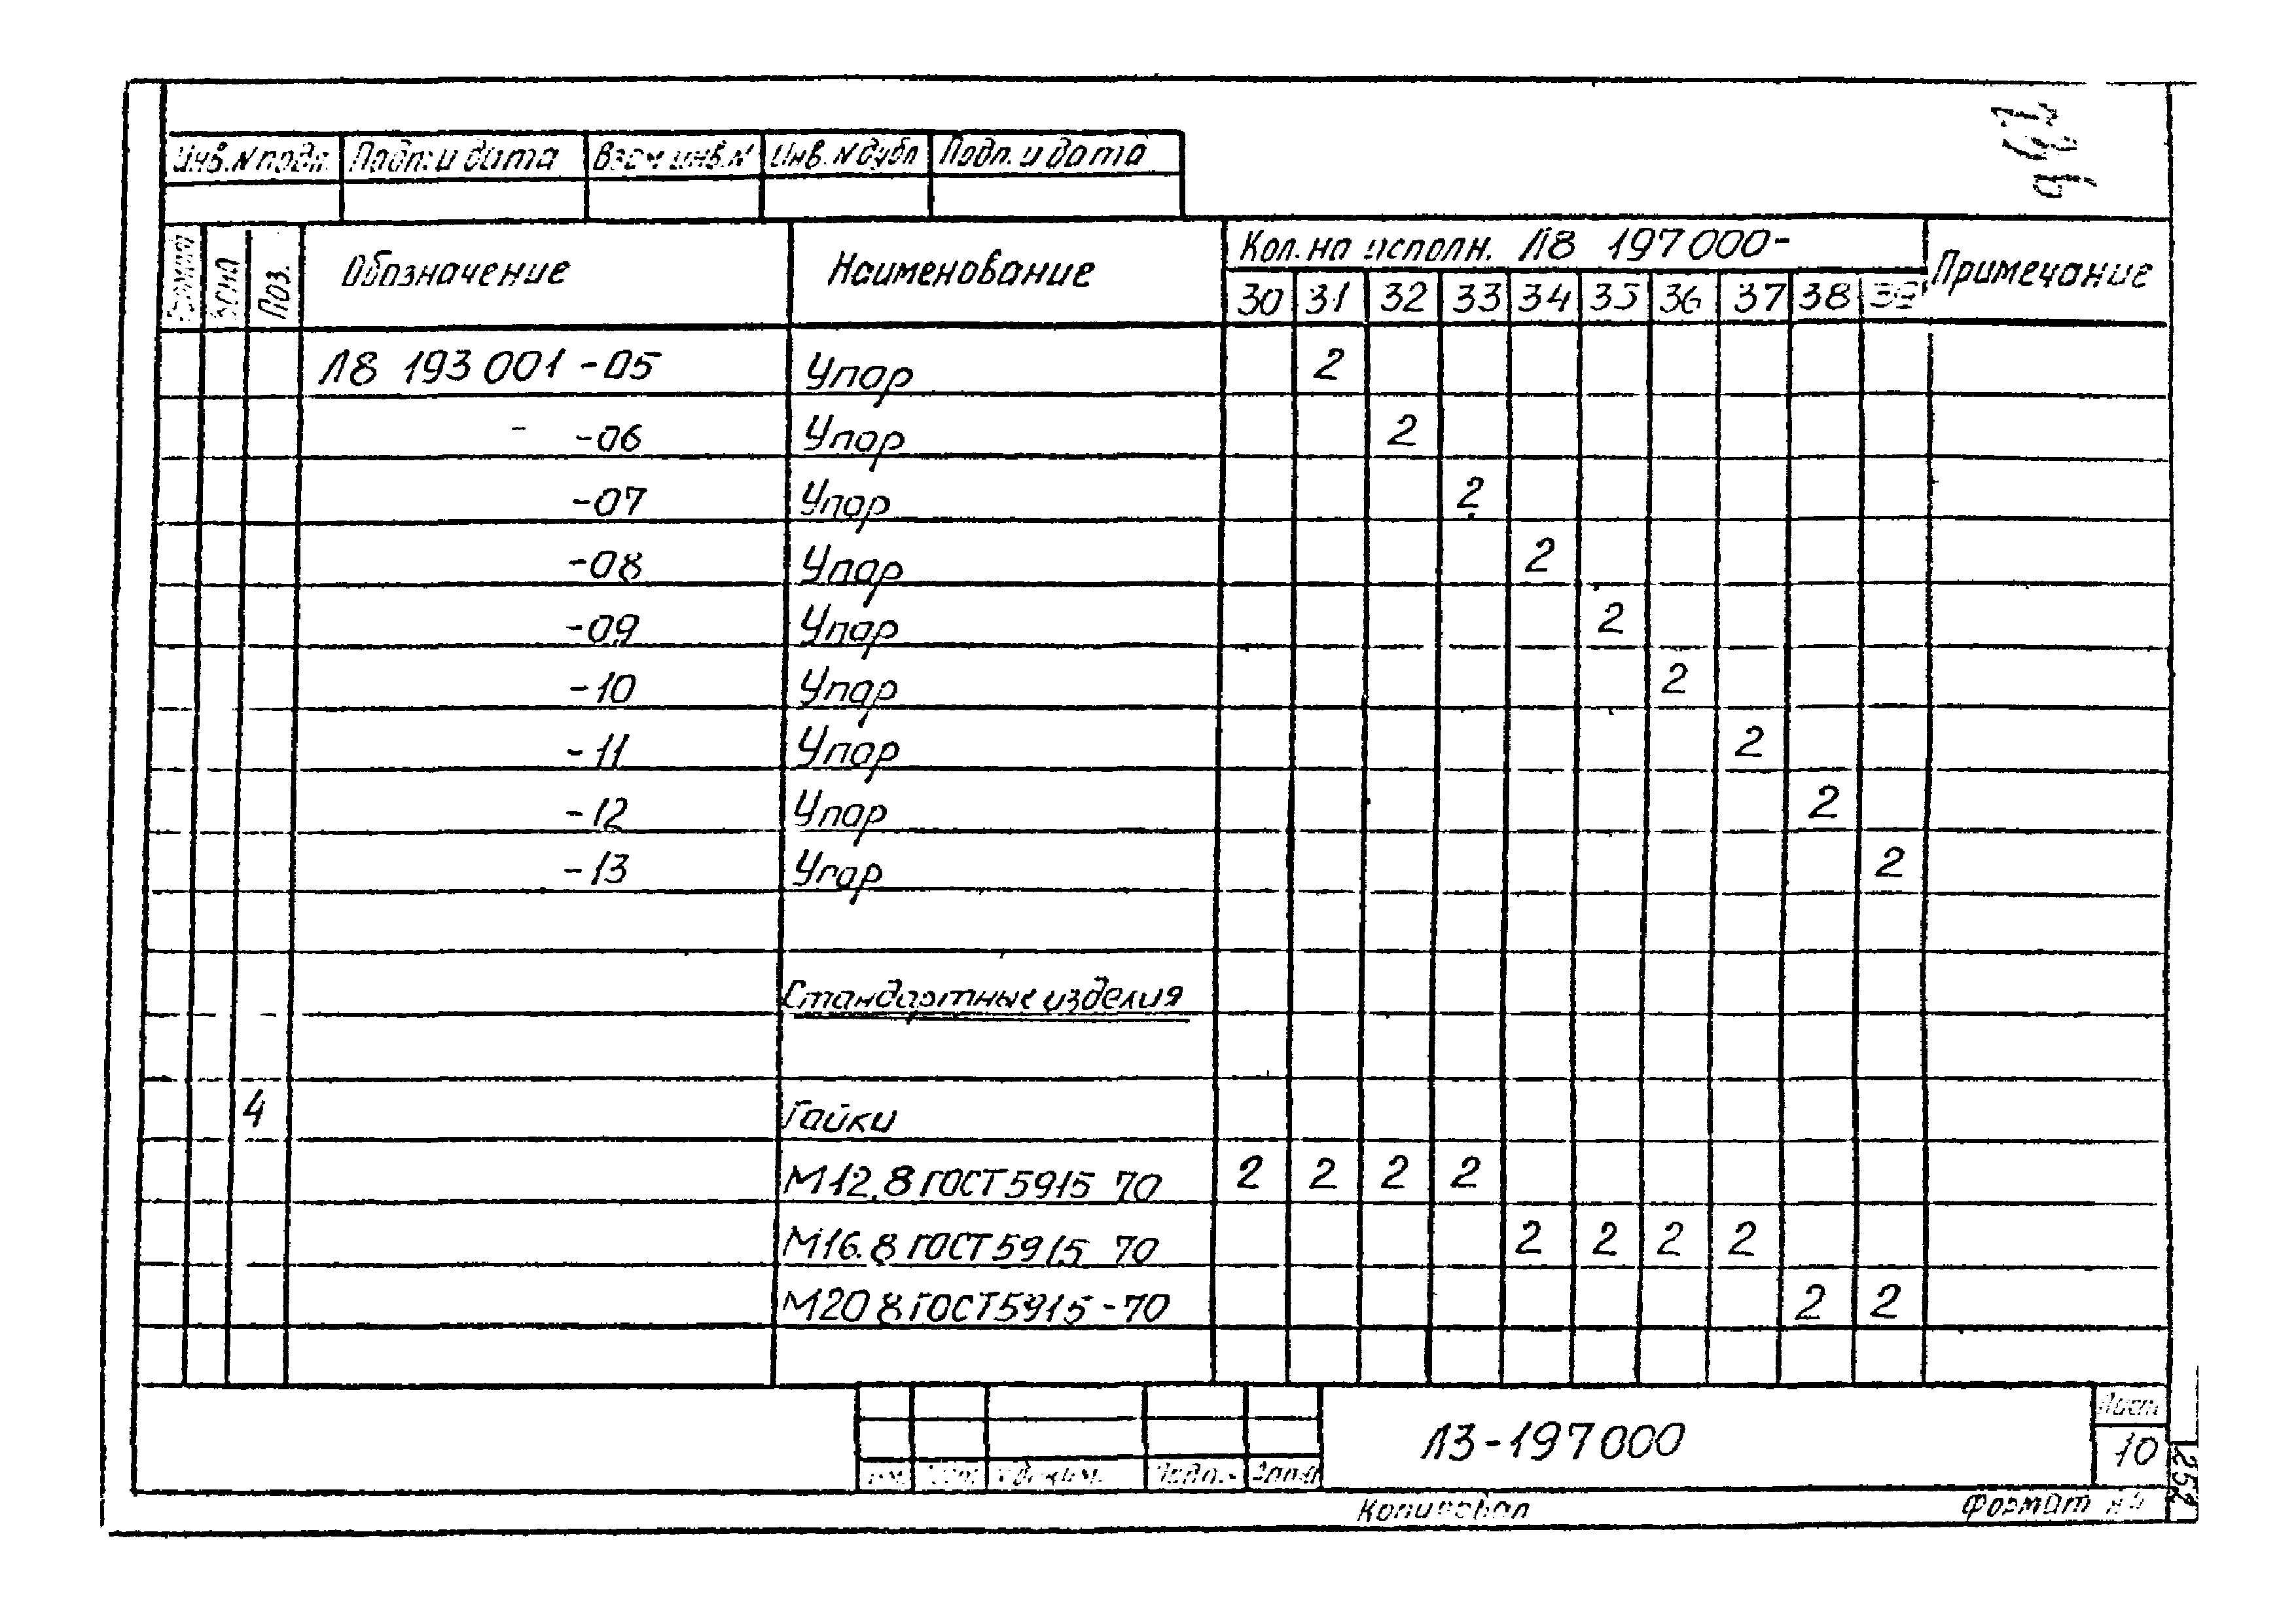 Инв.N подл. Подп. и дата Взам инв.N Инв. N дубл Подп. и дата
Поз. Обозначение Наименование Кол. на исполн. Л8 197000- Примечание
30 31 32 33 34 35 36 37 38 39
Л8 193 001 -05 Упор 2
-06 Упор 2
-07 Упор 2
-08 Упор 2
-09 Упор 2
-10 Упор 2
-11 Упор 2
-12 Упор 2
-13 Упор 2
Стандартные изделия
4 Гайки
М12.8 ГОСТ 5915 70 2 2 2 2
М16.8 ГОСТ 5915 70 2 2 2 2
М20 8 ГОСТ 5915-70 2 2
Л3-197000
Лист
10
Копировал Формат А4